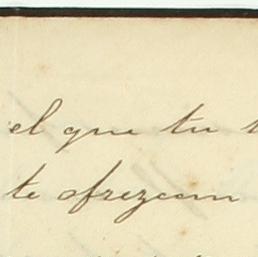 el que tu
te ofrezcan